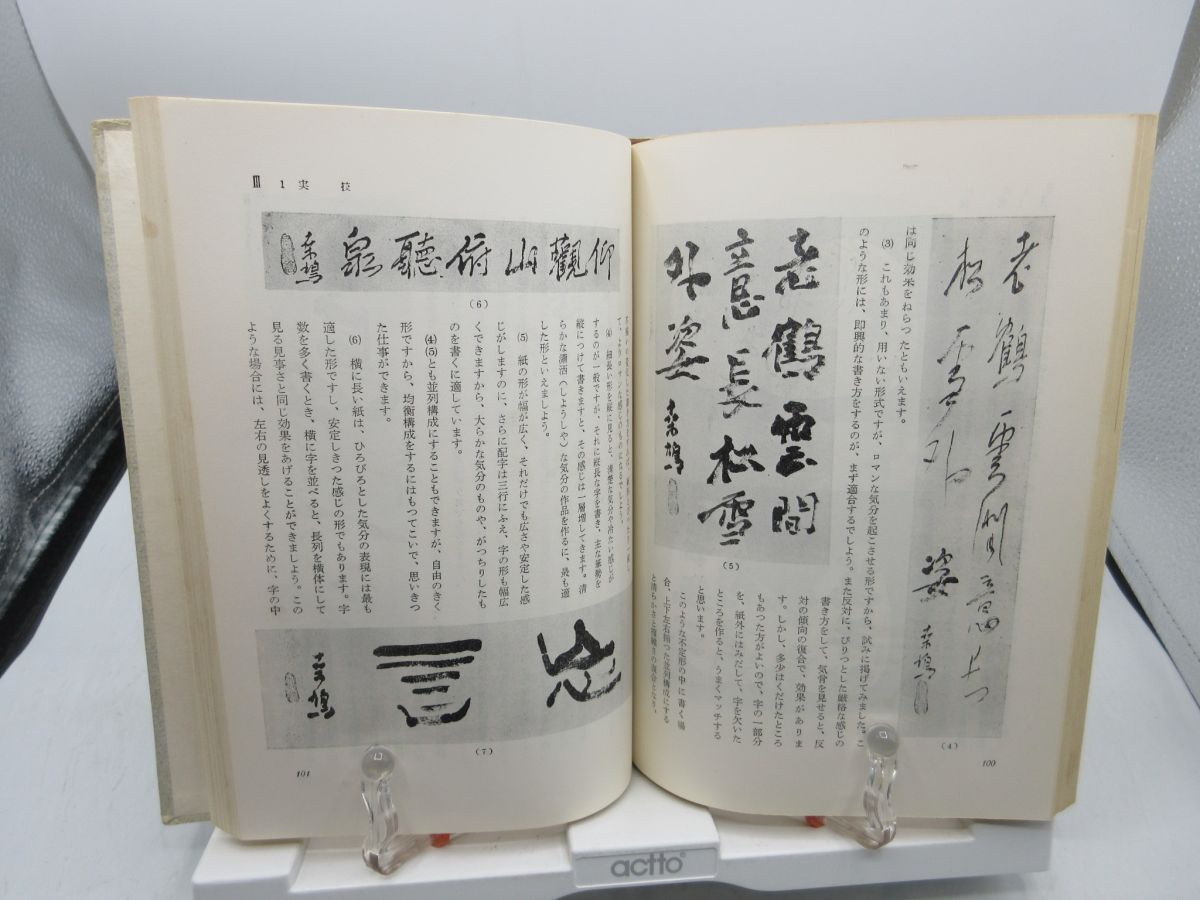 は同じ効果をねらつたともいえます。
(3) これもあまり、用いない形式ですが、ロマンな気分を起こさせる形ですから、試みに掲げてみました。こ
のような形には、即興的な書き方をするのが、まず適合するでしよう。また反対に、ぴりつとした厳格な感じの
書き方をして、気骨を見せると、反
対の傾向の復合で、効果がありま
す。しかし、多少はくだけたところ
もあつた方がよいので、字の一部分
を、紙外にはみだして、字を欠いた
ところを作ると、うまくマッチする
と思います。
このような不定形の中に書く場
合、上下左右揃つた並列構成にする
(4)
老鶴雲間
意長松雪
外姿
(5)
100
III 1 実技
仰觀山俯聽泉
(6)
(4) 細長い形を縦に見ると、清楚な気分や冷たい感じが
するのが一般ですが、それに縦長な字を書き、主な筆勢を
縦につけて書きますと、その感じは一層増してきます。清
らかな瀟洒(しようしや)な気分の作品を作るに、最も適
した形といえましよう。
(5) 紙の形が幅が広く、それだけでも広さや安定した感
じがしますのに、さらに配字は三行にふえ、字の形も幅広
くできますから、大らかな気分のものや、がつちりしたも
のを書くに適しています。
(4)(5)とも並列構成にすることもできますが、自由のきく
形ですから、均衡構成をするにはもつてこいで、思いきつ
た仕事ができます。
(6) 横に長い紙は、ひろびろとした気分の表現には最も
適した形ですし、安定しきつた感じの形でもあります。字
数を多く書くとき、横に字を並べると、長列を横体にして
見る見事さと同じ効果をあげることができましよう。この
ような場合には、左右の見透しをよくするために、字の中
(7)
101
actto